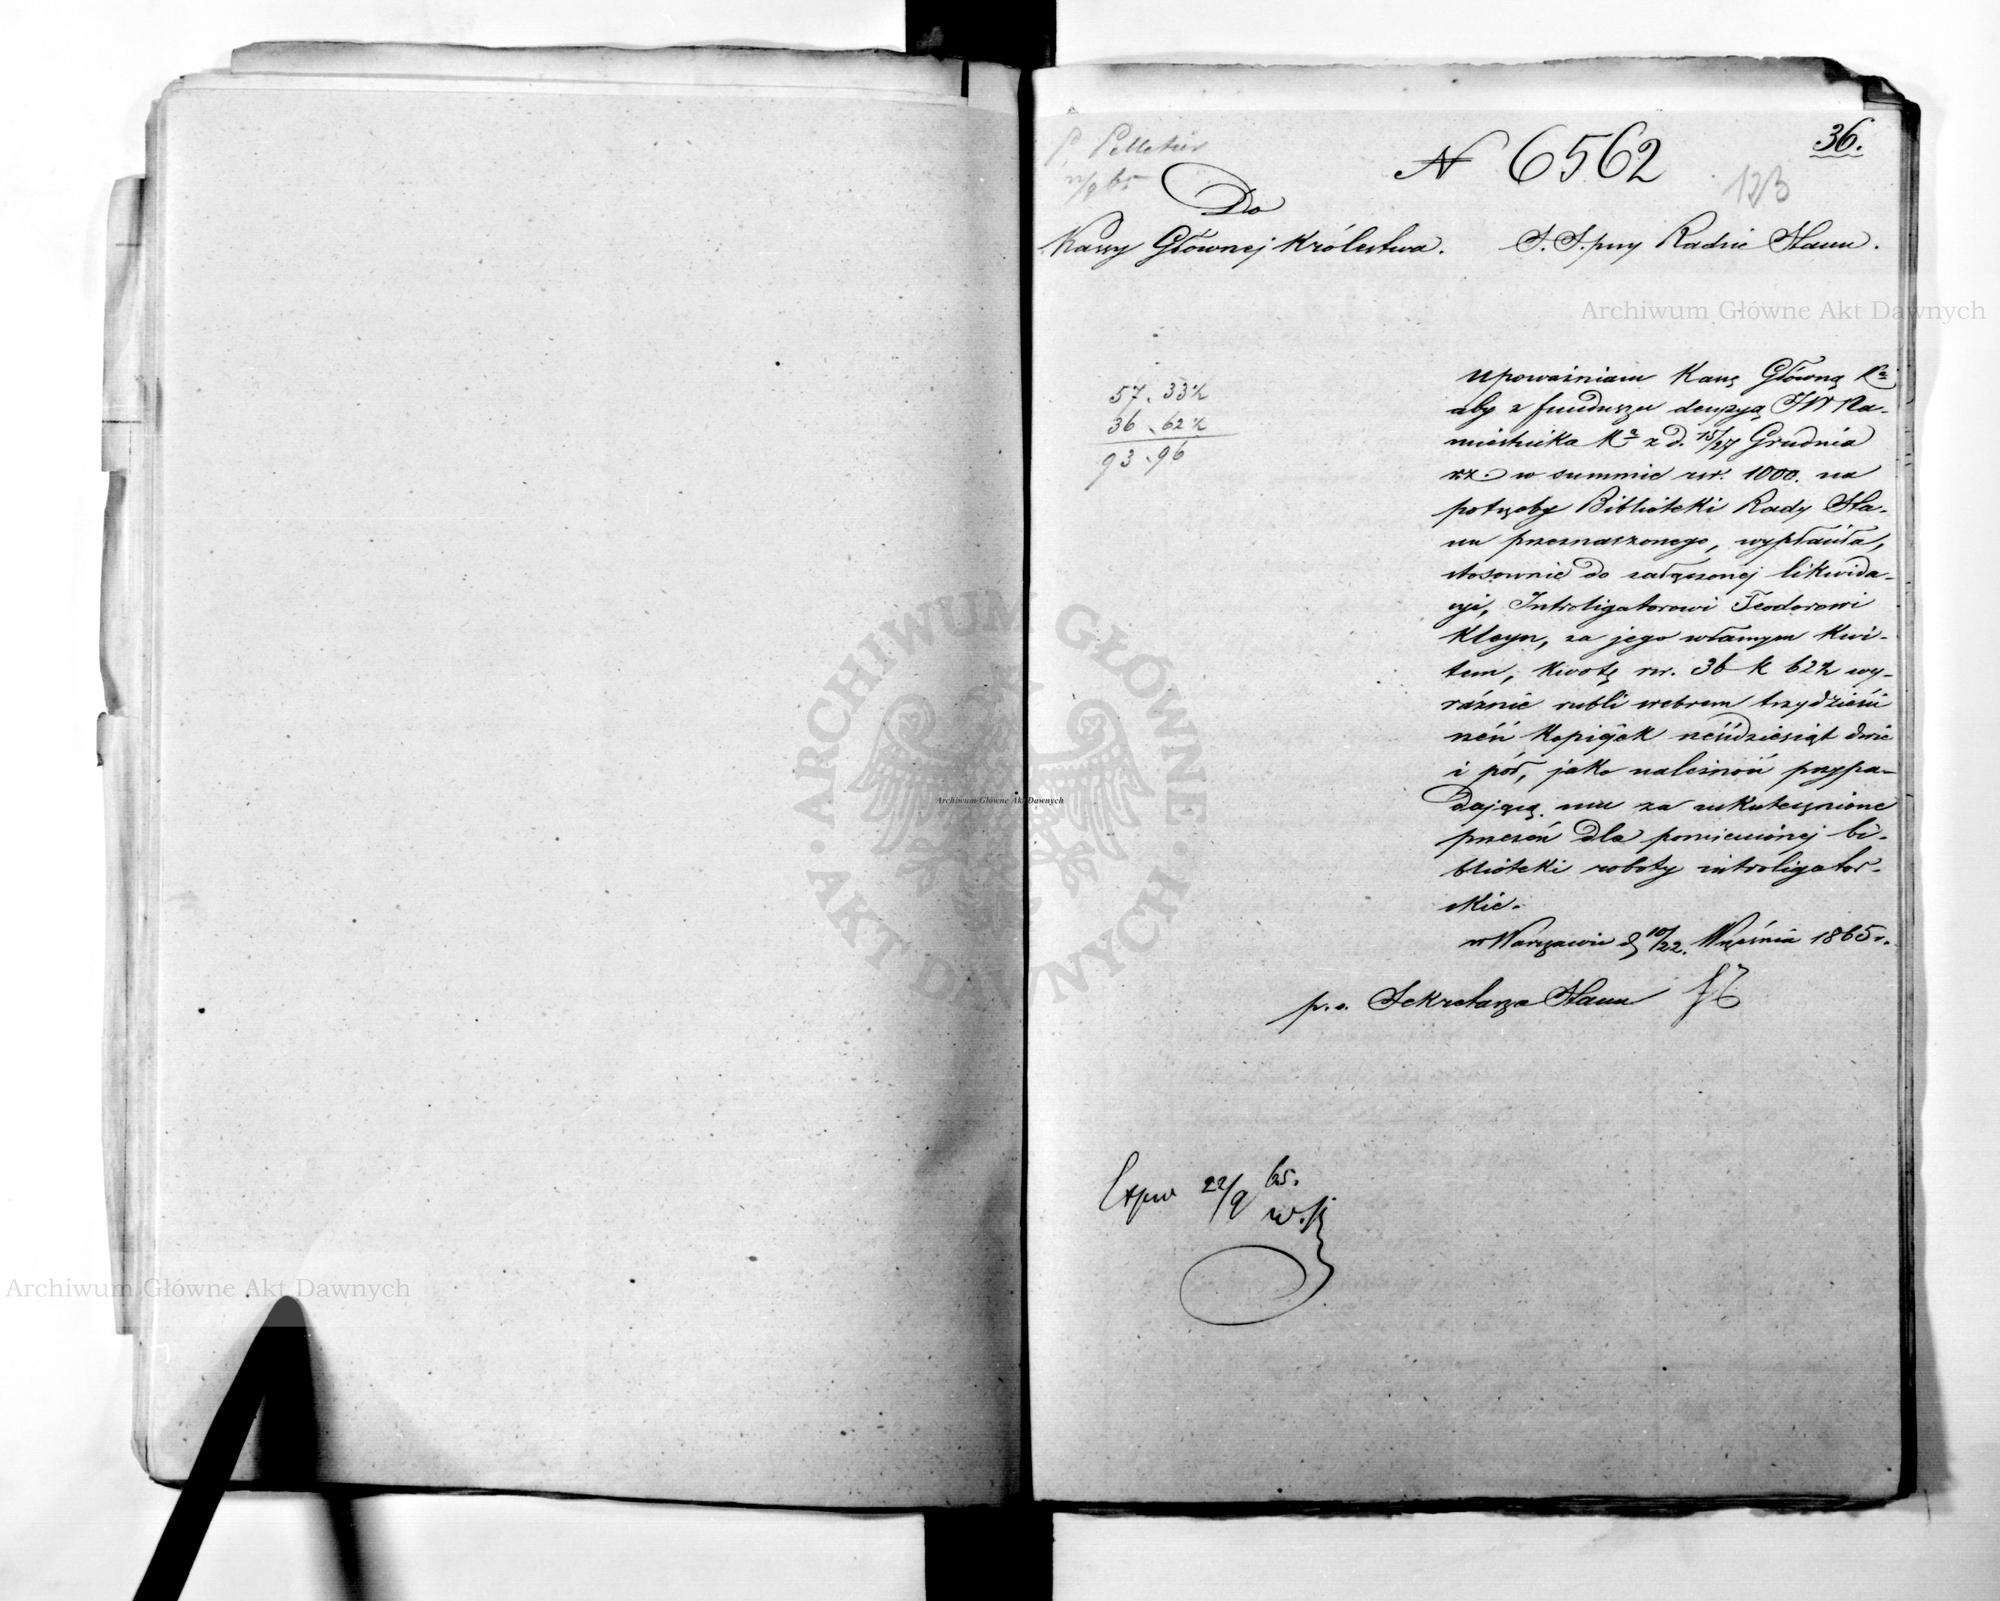 P. Pelletier
22/9 65
N 6562
36.
123
Do
Kassy Głównej Królestwa.
S. S. przy Radzie Stanu.
57. 33½
36. 62½
93. 96
Upoważniam Kassę Główną Kª
aby z funduszu decyzyą JW Na-
miestnika Kª z d. 15/27 Grudnia
r.z. w summie rsr. 1000. na
potrzeby Biblioteki Rady Sta-
nu przeznaczonego, wypłaciła,
stosownie do załączonej likwida-
cyi, Introligatorowi Teodorowi
Kleyn, za jego własnym kwi-
tem, kwotę rsr. 36 k 62½ wy-
raźnie rubli srebrem trzydzieści
sześć kopiejek sześćdziesiąt dwie
i pół, jako należność przypa-
dającą mu za uskutecznione
przezeń dla pomienionej bi-
blioteki roboty introligator-
skie.
w Warszawie d 10/22. Września 1865 r.
p. o. Sekretarza Stanu
Exped 22/9 65.
Archiwum Główne Akt Dawnych
Archiwum Główne Akt Dawnych
Archiwum Główne Akt Dawnych
ARCHIWUM GŁÓWNE
AKT DAWNYCH